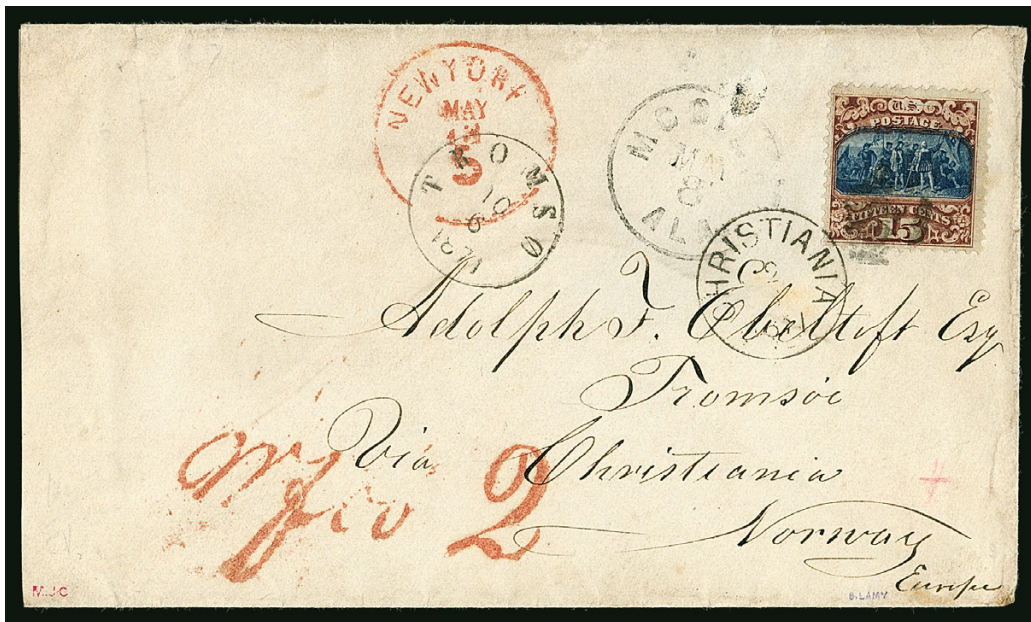 NEW YORK
MAY
5
TROMSØ
10
6
1871
MOBI
8
ALA
U.S.
POSTAGE
FIFTEEN CENTS
15
CHRISTIANIA
Adolph F. Ebeltoft Esq
Tromsöe
Via Christiania
Norway
Europe
Wfr
fco 2
M.J.C
B. LAMY